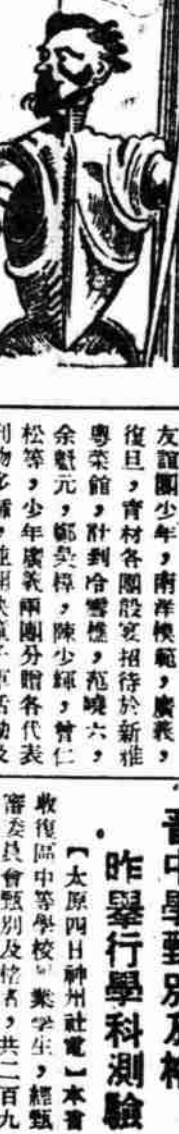 友誼團少年，南洋模範，廣義，
復旦，育材各團設宴招待於新雅
粵菜館，計到冷雪樵，范曉六，
余魁元，鄭昊樟，陳少輝，曾仁
松等，少年廣義兩團分贈各代表
晉中學甄別及格
昨舉行學科測驗
【太原四日神州社電】本省
收復區中等學校畢業學生，經甄
審委員會甄別及格者，共二百九